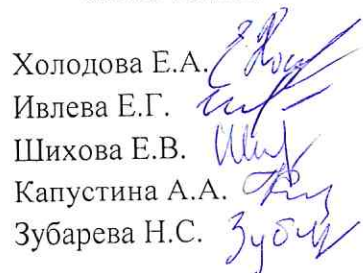 Холодова Е.А.
Ивлева Е.Г.
Шихова Е.В.
Капустина А.А.
Зубарева Н.С.